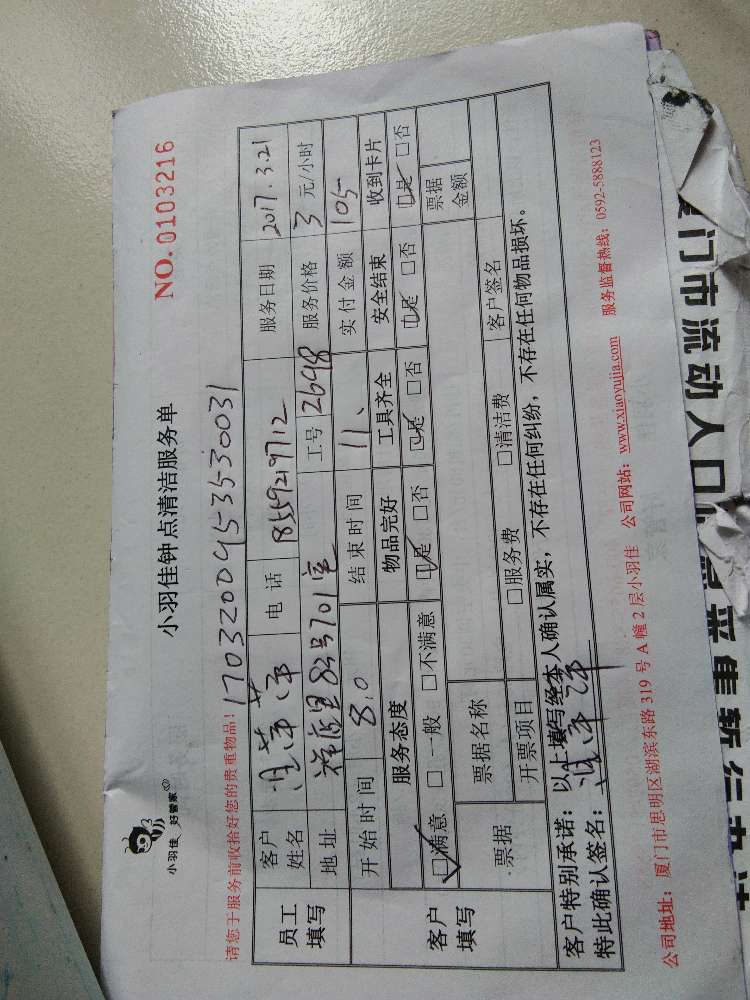 小羽佳 好管家
小羽佳钟点清洁服务单
NO. 0103216
请您于服务前收拾好您的贵重物品!
17032009453530031
员工填写
客户姓名
电 话 18559219712
服务日期 2017.3.21
地 址 祥店里83号701室
工号 2698
服务价格 3 元/小时
开始时间 8.0
结束时间 11、
实付金额 105
客户填写
服务态度 物品完好 工具齐全 安全结束 收到卡片
☑满意 □一般 □不满意 ☑是 □否 ☑是 □否 ☑是 □否 ☑是 □否
票据 票据名称 票据金额
开票项目 □服务费 □清洁费 客户签名
客户特别承诺:以上填写经本人确认属实,不存在任何纠纷,不存在任何物品损坏。
特此确认签名:
公司地址:厦门市思明区湖滨东路 319 号 A 幢 2 层小羽佳 公司网站:www.xiaoyujia.com 服务监督热线:0592-5888123
门市流动人口